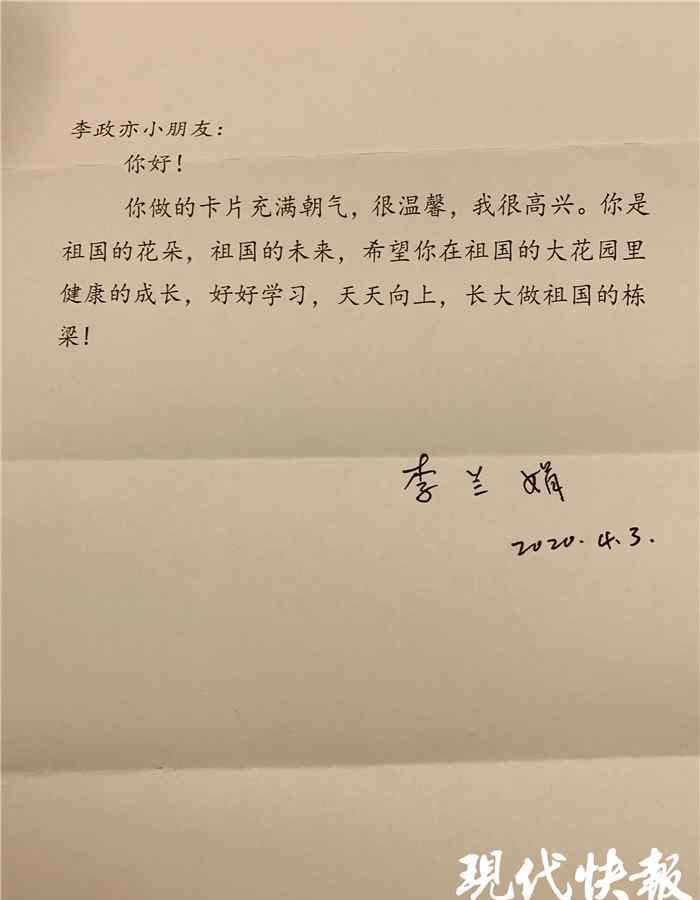 李政亦小朋友：
你好！
你做的卡片充满朝气，很温馨，我很高兴。你是
祖国的花朵，祖国的未来，希望你在祖国的大花园里
健康的成长，好好学习，天天向上，长大做祖国的栋
梁！
李兰娟
2020.4.3.
现代快報